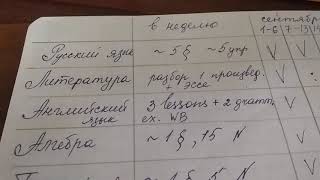 в неделю
сентябрь
1-6 7-13
Русский язык ~ 5 § ~ 5 упр V V
Литература разбор 1 произвед.
+ эссе V
Английский 3 lessons + 2 gramm. V
язык ex. WB
Алгебра ~ 1 §, 15 N V